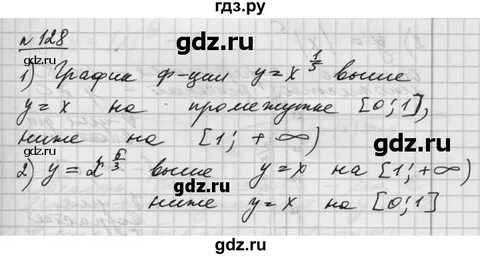 гдз.ру
№ 128
gdz.ru gdz.ru
1) График ф-ции y=x^{1/3} выше
y=x на промежутке [0;1],
gdz.ru gdz.ru
ниже на [1; +∞)
2) y=x^{5/3} выше y=x на [1;+∞)
gdz.ru gdz.ru
ниже y=x на [0;1]
gdz.ru gdz.ru